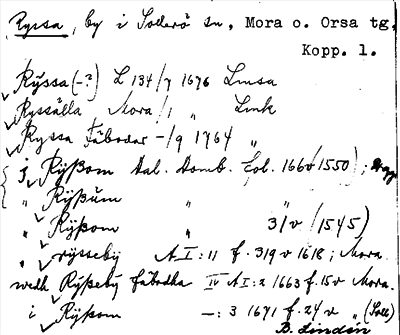 Ryssa, by i Sollerö sn, Mora o. Orsa tg,
Kopp. l.
Rÿssa (-?) L 134/7 1676 Lmsa
Ryssälla Mora/1 " Lmk
Ryssa Fäbodar -/9 1764 "
j Rÿßom Dal. Domb. fol. 166v (1550);
" Rÿßŭm "
" Rÿßom " 31v (1545)
" rÿsseby A I:11 f. 319v 1618; Mora.
wedh Rÿßebÿ fäbodha IV A I:2 1663 f. 15v Mora.
i Rÿßom —:3 1671 f. 24v " (Soll)
B. Lindén